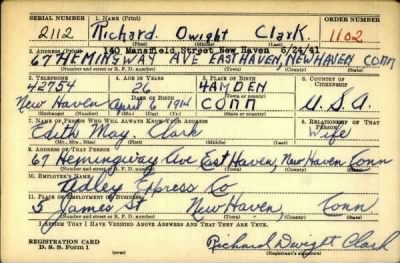 SERIAL NUMBER 1. NAME (Print) ORDER NUMBER
2112 Richard Dwight Clark 1102
(First) (Middle) (Last)
140 Mansfield Street New Haven 6/24/41
2. ADDRESS (Print)
67 HEMINGWAY AVE EAST HAVEN, NEW HAVEN CONN
(Number and street or R. F. D. number) (Town) (County) (State)
3. TELEPHONE 4. AGE IN YEARS 5. PLACE OF BIRTH 6. COUNTRY OF CITIZENSHIP
42754 26 HAMDEN
DATE OF BIRTH
New Haven April 6 1914 CONN U.S.A.
(Exchange) (Number) (Mo.) (Day) (Yr.) (State or country)
7. NAME OF PERSON WHO WILL ALWAYS KNOW YOUR ADDRESS 8. RELATIONSHIP OF THAT PERSON
Edith May Clark Wife
(Mr., Mrs., Miss) (First) (Middle) (Last)
9. ADDRESS OF THAT PERSON
67 Hemingway Ave East Haven, New Haven Conn
(Number and street or R. F. D. number) (Town) (County) (State)
10. EMPLOYER'S NAME
Adley Express Co
11. PLACE OF EMPLOYMENT OR BUSINESS
5 James St New Haven, Conn
(Number and street or R. F. D. number) (Town) (County) (State)
I AFFIRM THAT I HAVE VERIFIED ABOVE ANSWERS AND THAT THEY ARE TRUE.
REGISTRATION CARD
D. S. S. Form 1 (over) Richard Dwight Clark
(Registrant's signature)